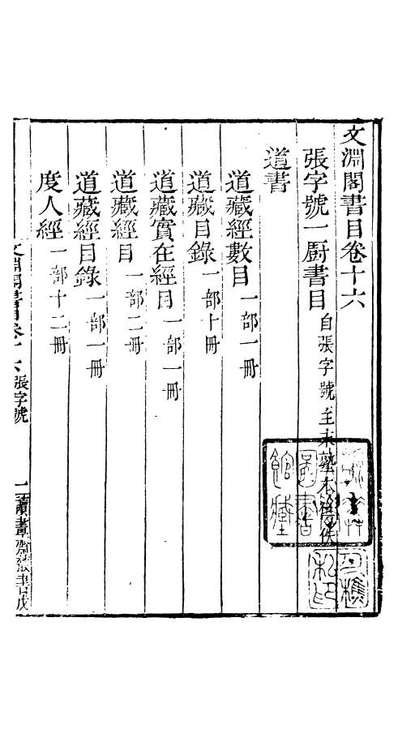 文淵閣書目卷十六
張字號一厨書目 自張字號至末
道書
道藏經數目 一部一冊
道藏目錄 一部十冊
道藏實在經目 一部一冊
道藏經目 一冊
道藏經目錄 一部一冊
度人經 一部十二冊
文淵閣書目卷十六 張字號 一 讀畫齋叢書戊